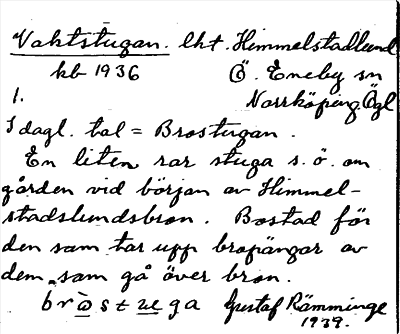 Vaktstugan. lht. Himmelstadlund
kb 1936 Ö. Eneby sn
1. Norrköping Ögl
I dagl. tal = Brostugan.
En liten rar stuga s. ö. om
gården vid början av Himmel-
stadslundsbron. Bostad för
den som tar upp bropängar av
dem som gå över bron.
Gustaf Rämminge
1939.